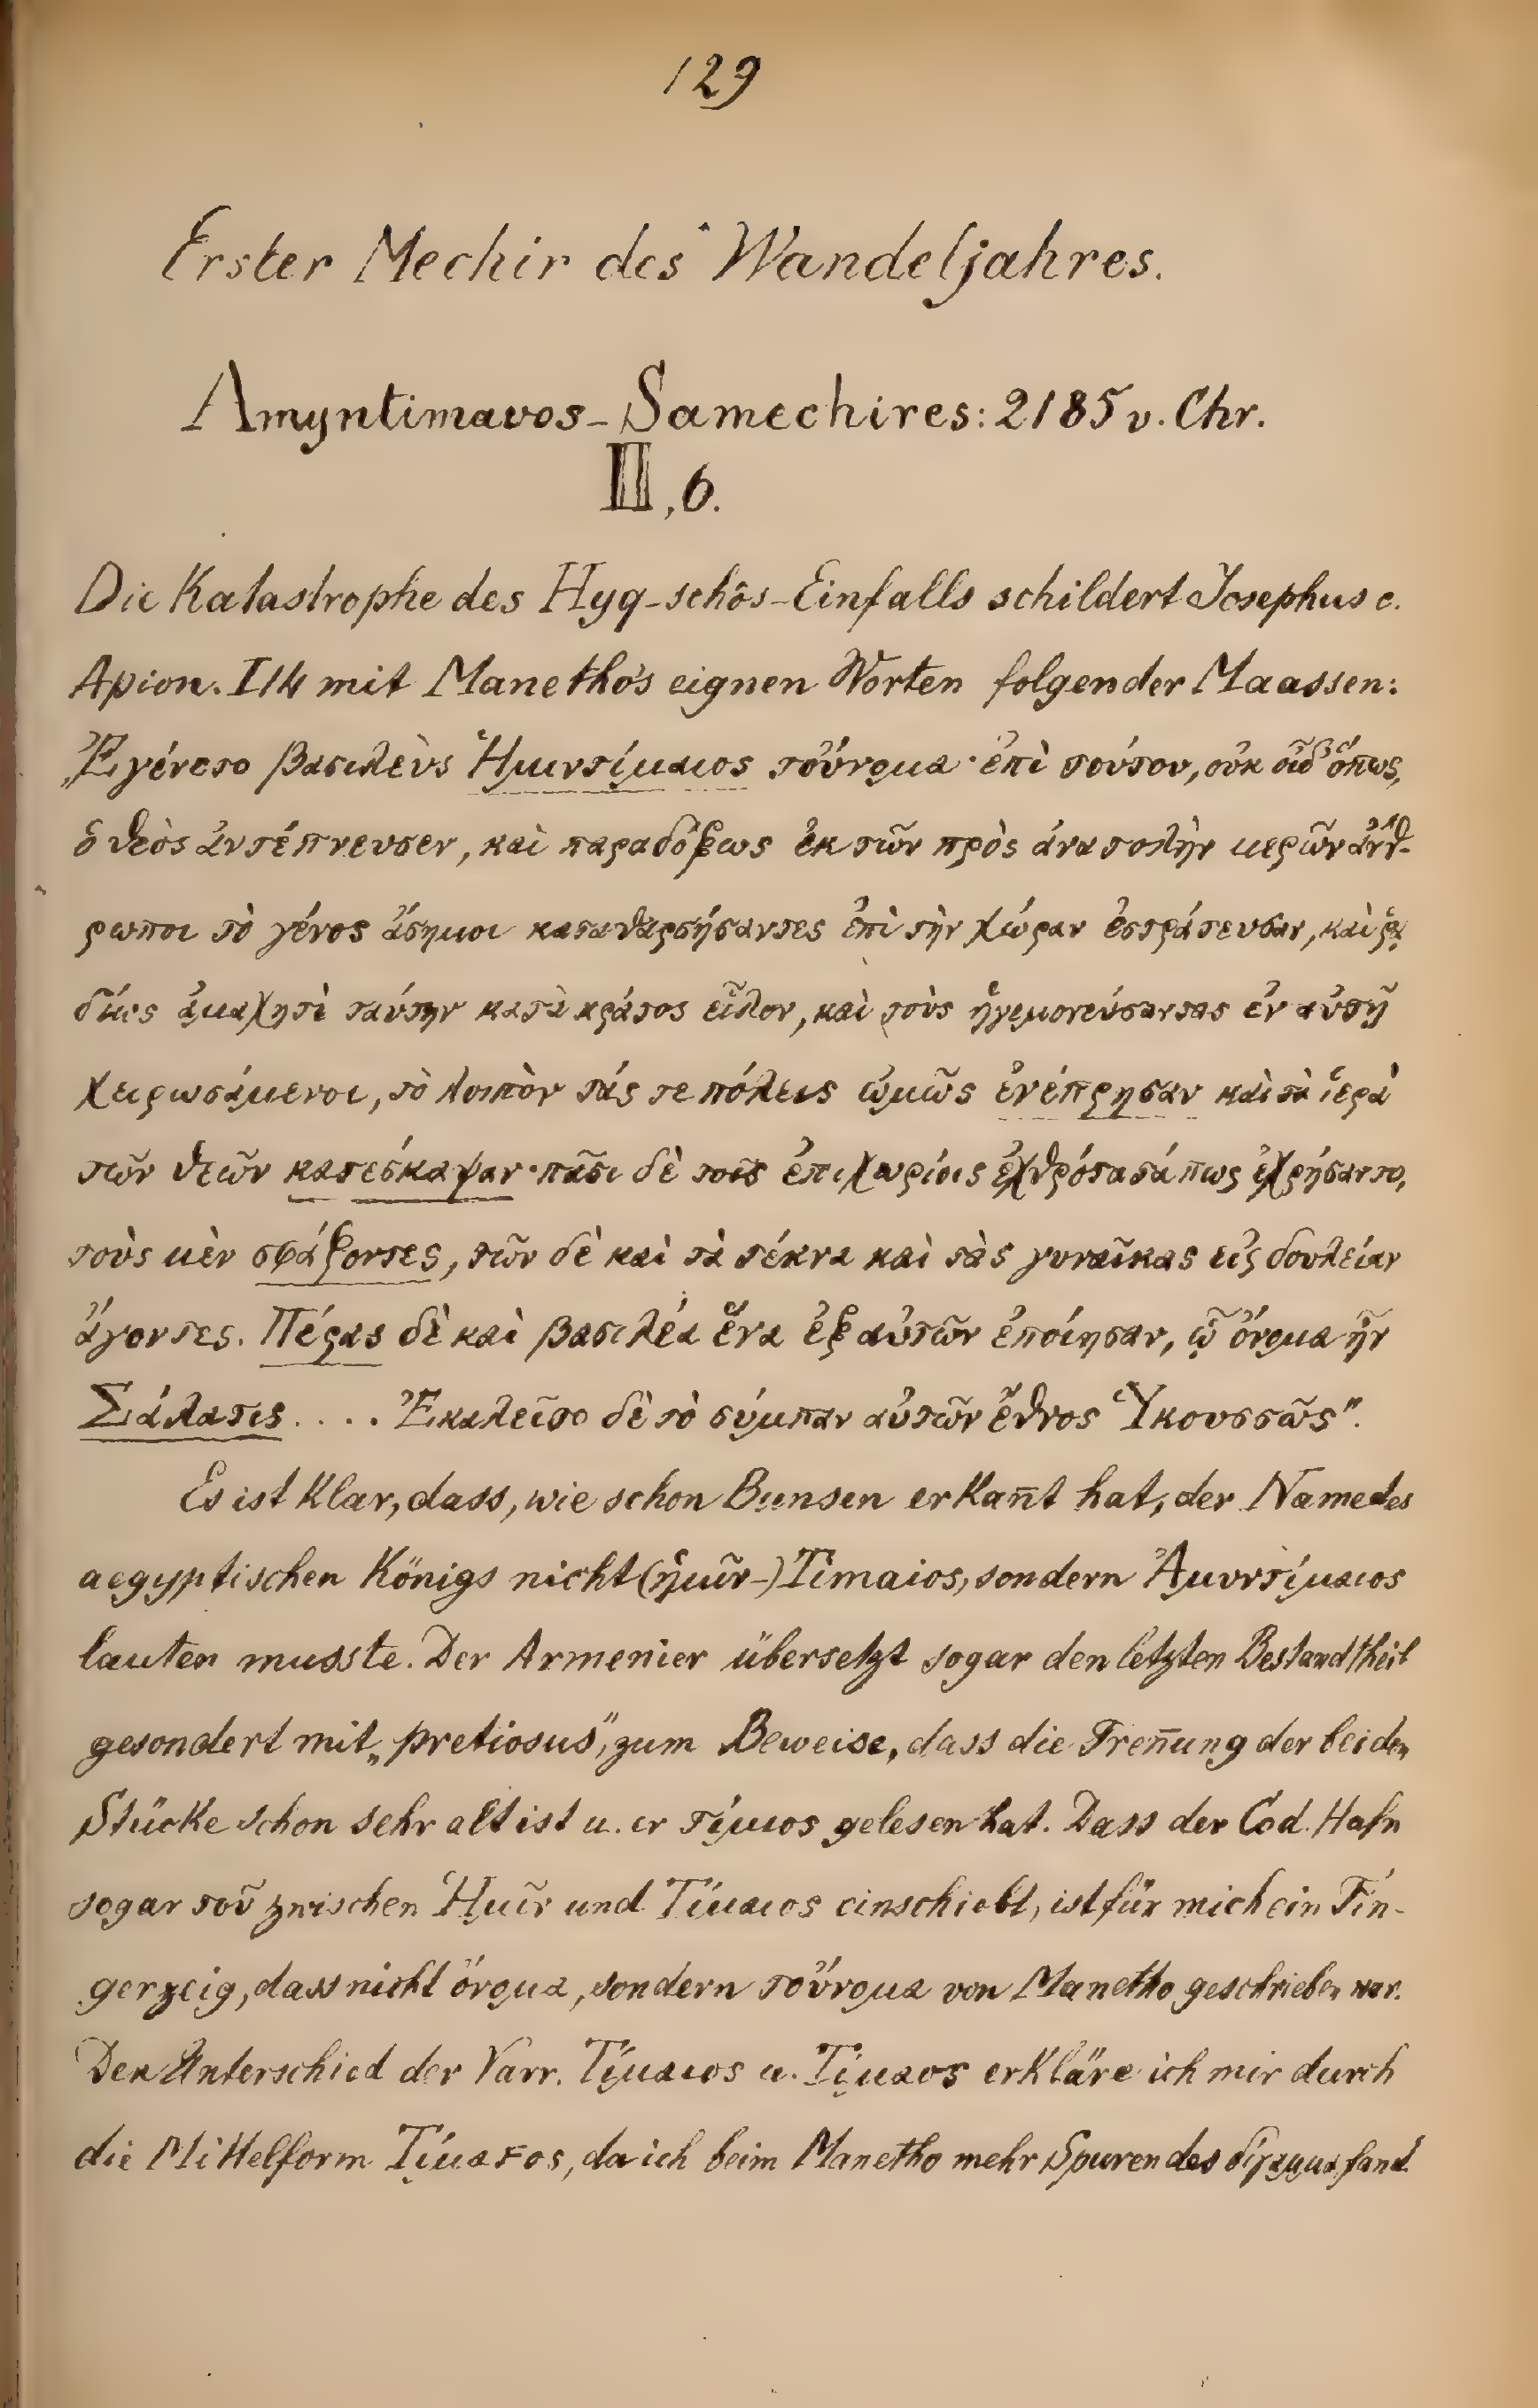 129
Erster Mechir des Wandeljahres.
Amyntimavos-Samechires: 2185 v. Chr.
III, 6.
Die Katastrophe des Hyq-schôs-Einfalls schildert Josephus c.
Apion. I 14 mit Manetho's eignen Worten folgender Maassen:
„Ἐγένετο βασιλεὺς Ἡμιντίμαιος τοὔνομα· ἐπὶ τούτου, οὐκ οἶδ' ὅπως,
ὁ θεὸς ἀντέπνευσεν, καὶ παραδόξως ἐκ τῶν πρὸς ἀνατολὴν μερῶν ἄνθ-
ρωποι τὸ γένος ἄσημοι καταθαρσήσαντες ἐπὶ τὴν χώραν ἐστράτευσαν, καὶ ῥᾳ
δίως ἀμαχητὶ ταύτην κατὰ κράτος εἷλον, καὶ τοὺς ἡγεμονεύσαντας ἐν αὐτῇ
χειρωσάμενοι, τὸ λοιπὸν τάς τε πόλεις ὠμῶς ἐνέπρησαν καὶ τὰ ἱερὰ
τῶν θεῶν κατέσκαψαν· πᾶσι δὲ τοῖς ἐπιχωρίοις ἐχθρότατά πως ἐχρήσαντο,
τοὺς μὲν σφάζοντες, τῶν δὲ καὶ τὰ τέκνα καὶ τὰς γυναῖκας εἰς δουλείαν
ἄγοντες. Πέρας δὲ καὶ βασιλέα ἕνα ἐξ αὐτῶν ἐποίησαν, ᾧ ὄνομα ἦν
Σάλατις.... Ἐκαλεῖτο δὲ τὸ σύμπαν αὐτῶν ἔθνος Ὑκουσσῶς".
Es ist klar, dass, wie schon Bunsen erkan̄t hat, der Name des
aegyptischen Königs nicht (ἡμῖν-) Timaios, sondern Ἀμυντίμαιος
lauten musste. Der Armenier übersetzt sogar den letzten Bestandtheil
gesondert mit „pretiosus", zum Beweise, dass die Tren̄ung der beiden
Stücke schon sehr alt ist u. er τίμιος gelesen hat. Dass der Cod. Hafn
sogar τοῦ zwischen Ἡμῖν und Τίμαιος einschiebt, ist für mich ein Fin-
gerzeig, dass nicht ὄνομα, sondern τοὔνομα von Manetho geschrieben war.
Den Unterschied der Varr. Τίμαιος u. Τίμαος erkläre ich mir durch
die Mittelform ΤίμαϜος, da ich beim Manetho mehr Spuren des δίγαμμα fand